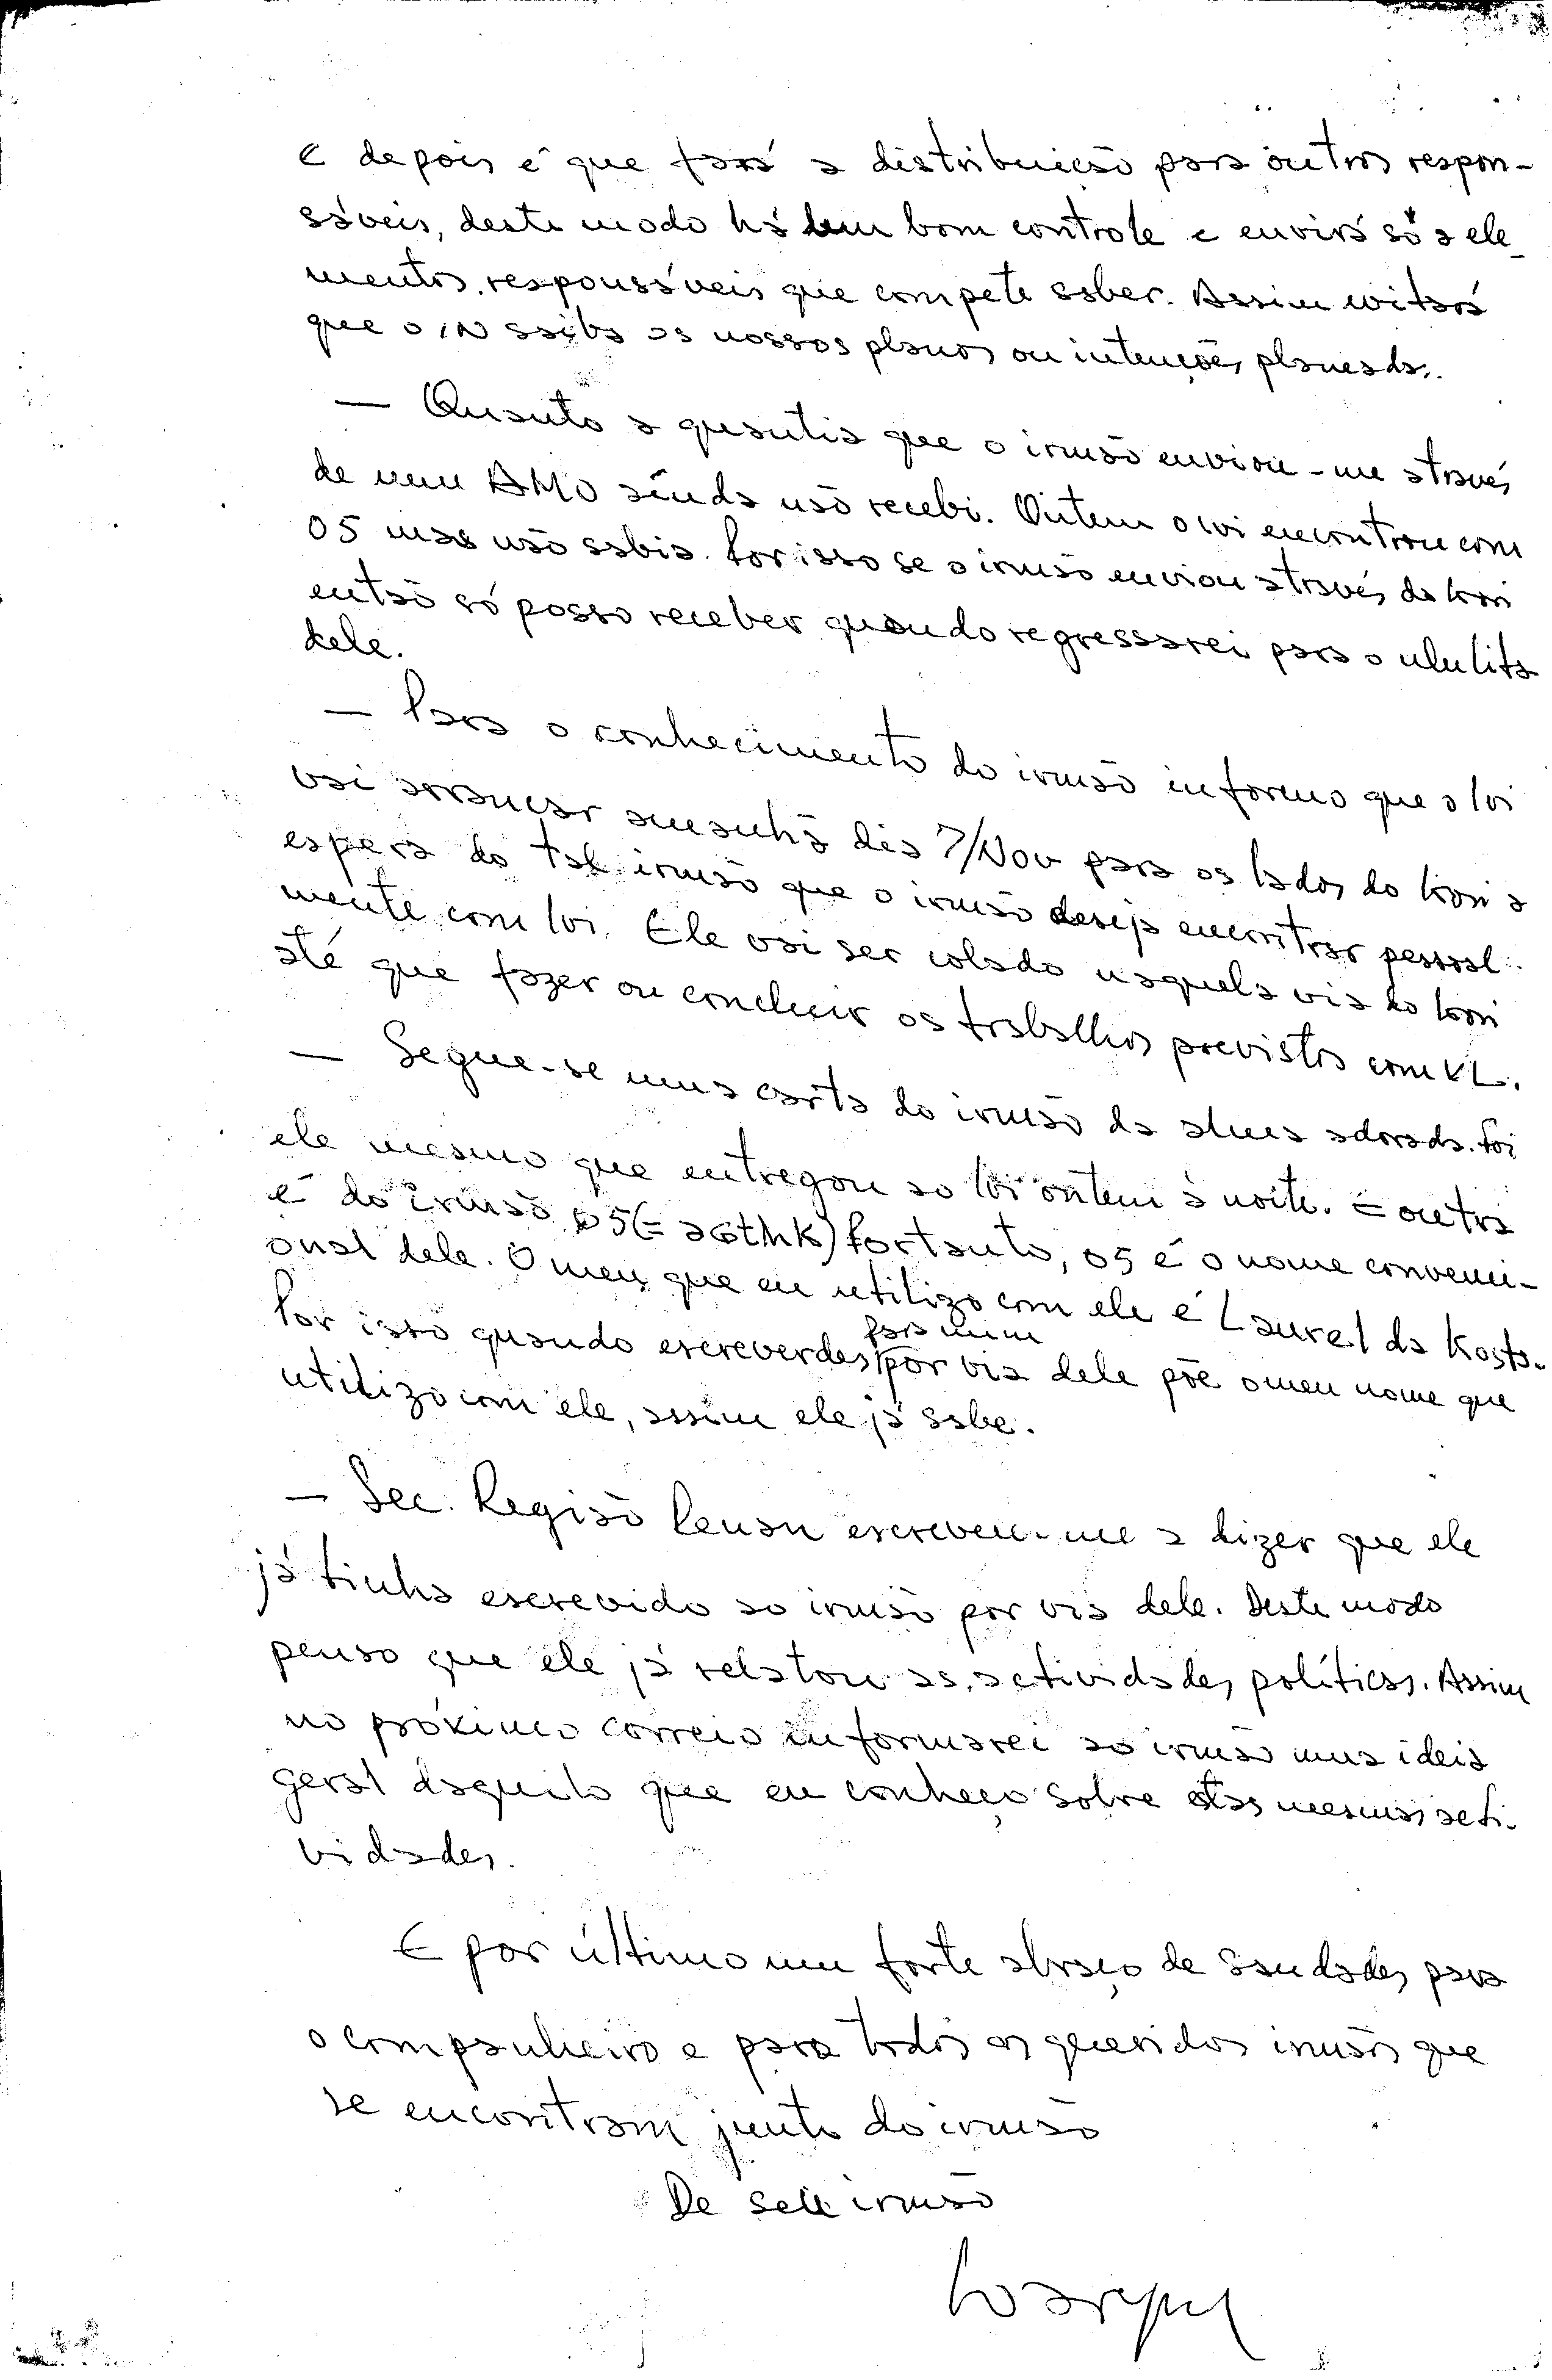 e depois é que fará a distribuição para outros respon-
sáveis, deste modo há um bom controle e enviará só a ele-
mentos responsáveis que compete saber. Assim evitará
que o IN saiba os nossos planos ou intenções planeadas.
— Quanto a quantia que o irmão enviou-me através
de um AMO ainda não recebi. Ontem o loi encontrou com
05 mas não sabia. Por isso se o irmão enviou através do kori
então só posso receber quando regressarei para o ululita
dele.
— Para o conhecimento do irmão informo que o loi
vai arrancar amanhã dia 7/Nov para os lados do kori a
espera do tal irmão que o irmão deseja encontrar pessoal-
mente com loi. Ele vai ser colado naquela via do kori
até que fazer ou concluir os trabalhos previstos com VL.
— Segue-se uma carta do irmão da alma adorada. Foi
ele mesmo que entregou ao loi ontem à noite. E outra
é do irmão 05 (= ) Portanto, 05 é o nome convenci-
onal dele. O meu que eu utilizo com ele é Laurel da Kosta.
Por isso quando escreverdes para mim por via dele põe o meu nome que
utilizo com ele, assim ele já sabe.
— Sec. Região Renan escreveu-me a dizer que ele
já tinha escrevido ao irmão por via dele. Deste modo
penso que ele já relatou as actividades políticas. Assim
no próximo correio informarei ao irmão uma ideia
geral daquilo que eu conheço sobre estas mesmas acti-
vidades.
E por último um forte abraço de saudades para
o companheiro e para todos os queridos irmãos que
se encontram junto do irmão
De seu irmão